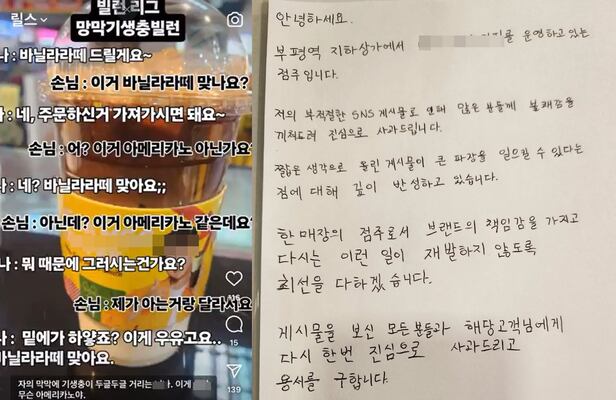 릴스
빌런 리그
망막기생충빌런
나 : 바닐라라떼 드릴게요~
손님 : 이거 바닐라라떼 맞나요?
나 : 네, 주문하신거 가져가시면 돼요~
손님 : 어? 이거 아메리카노 아닌가요?
나 : 네? 바닐라라떼 맞아요;;
손님 : 아닌데? 이거 아메리카노 같은데요?
나 : 뭐 때문에 그러시는건가요?
손님 : 제가 아는거랑 달라서요
나 : 밑에가 하얗죠? 이게 우유고요..
바닐라라떼 맞아요.
15
139
자의 망막에 기생충이 두글두글 거리는
다. 이게
무슨 아메리카노야.
안녕하세요.
부평역 지하상가에서
를 운영하고 있는
점주입니다.
저의 부적절한 SNS 게시물로 인해 많은 분들께 불쾌감을
끼쳐드려 진심으로 사과드립니다.
짧은 생각으로 올린 게시물이 큰 파장을 일으킬 수 있다는
점에 대해 깊이 반성하고 있습니다.
한 매장의 점주로서 브랜드의 책임감을 가지고
다시는 이런 일이 재발하지 않도록
최선을 다하겠습니다.
게시물을 보신 모든분들과 해당고객님에게
다시 한번 진심으로 사과드리고
용서를 구합니다.